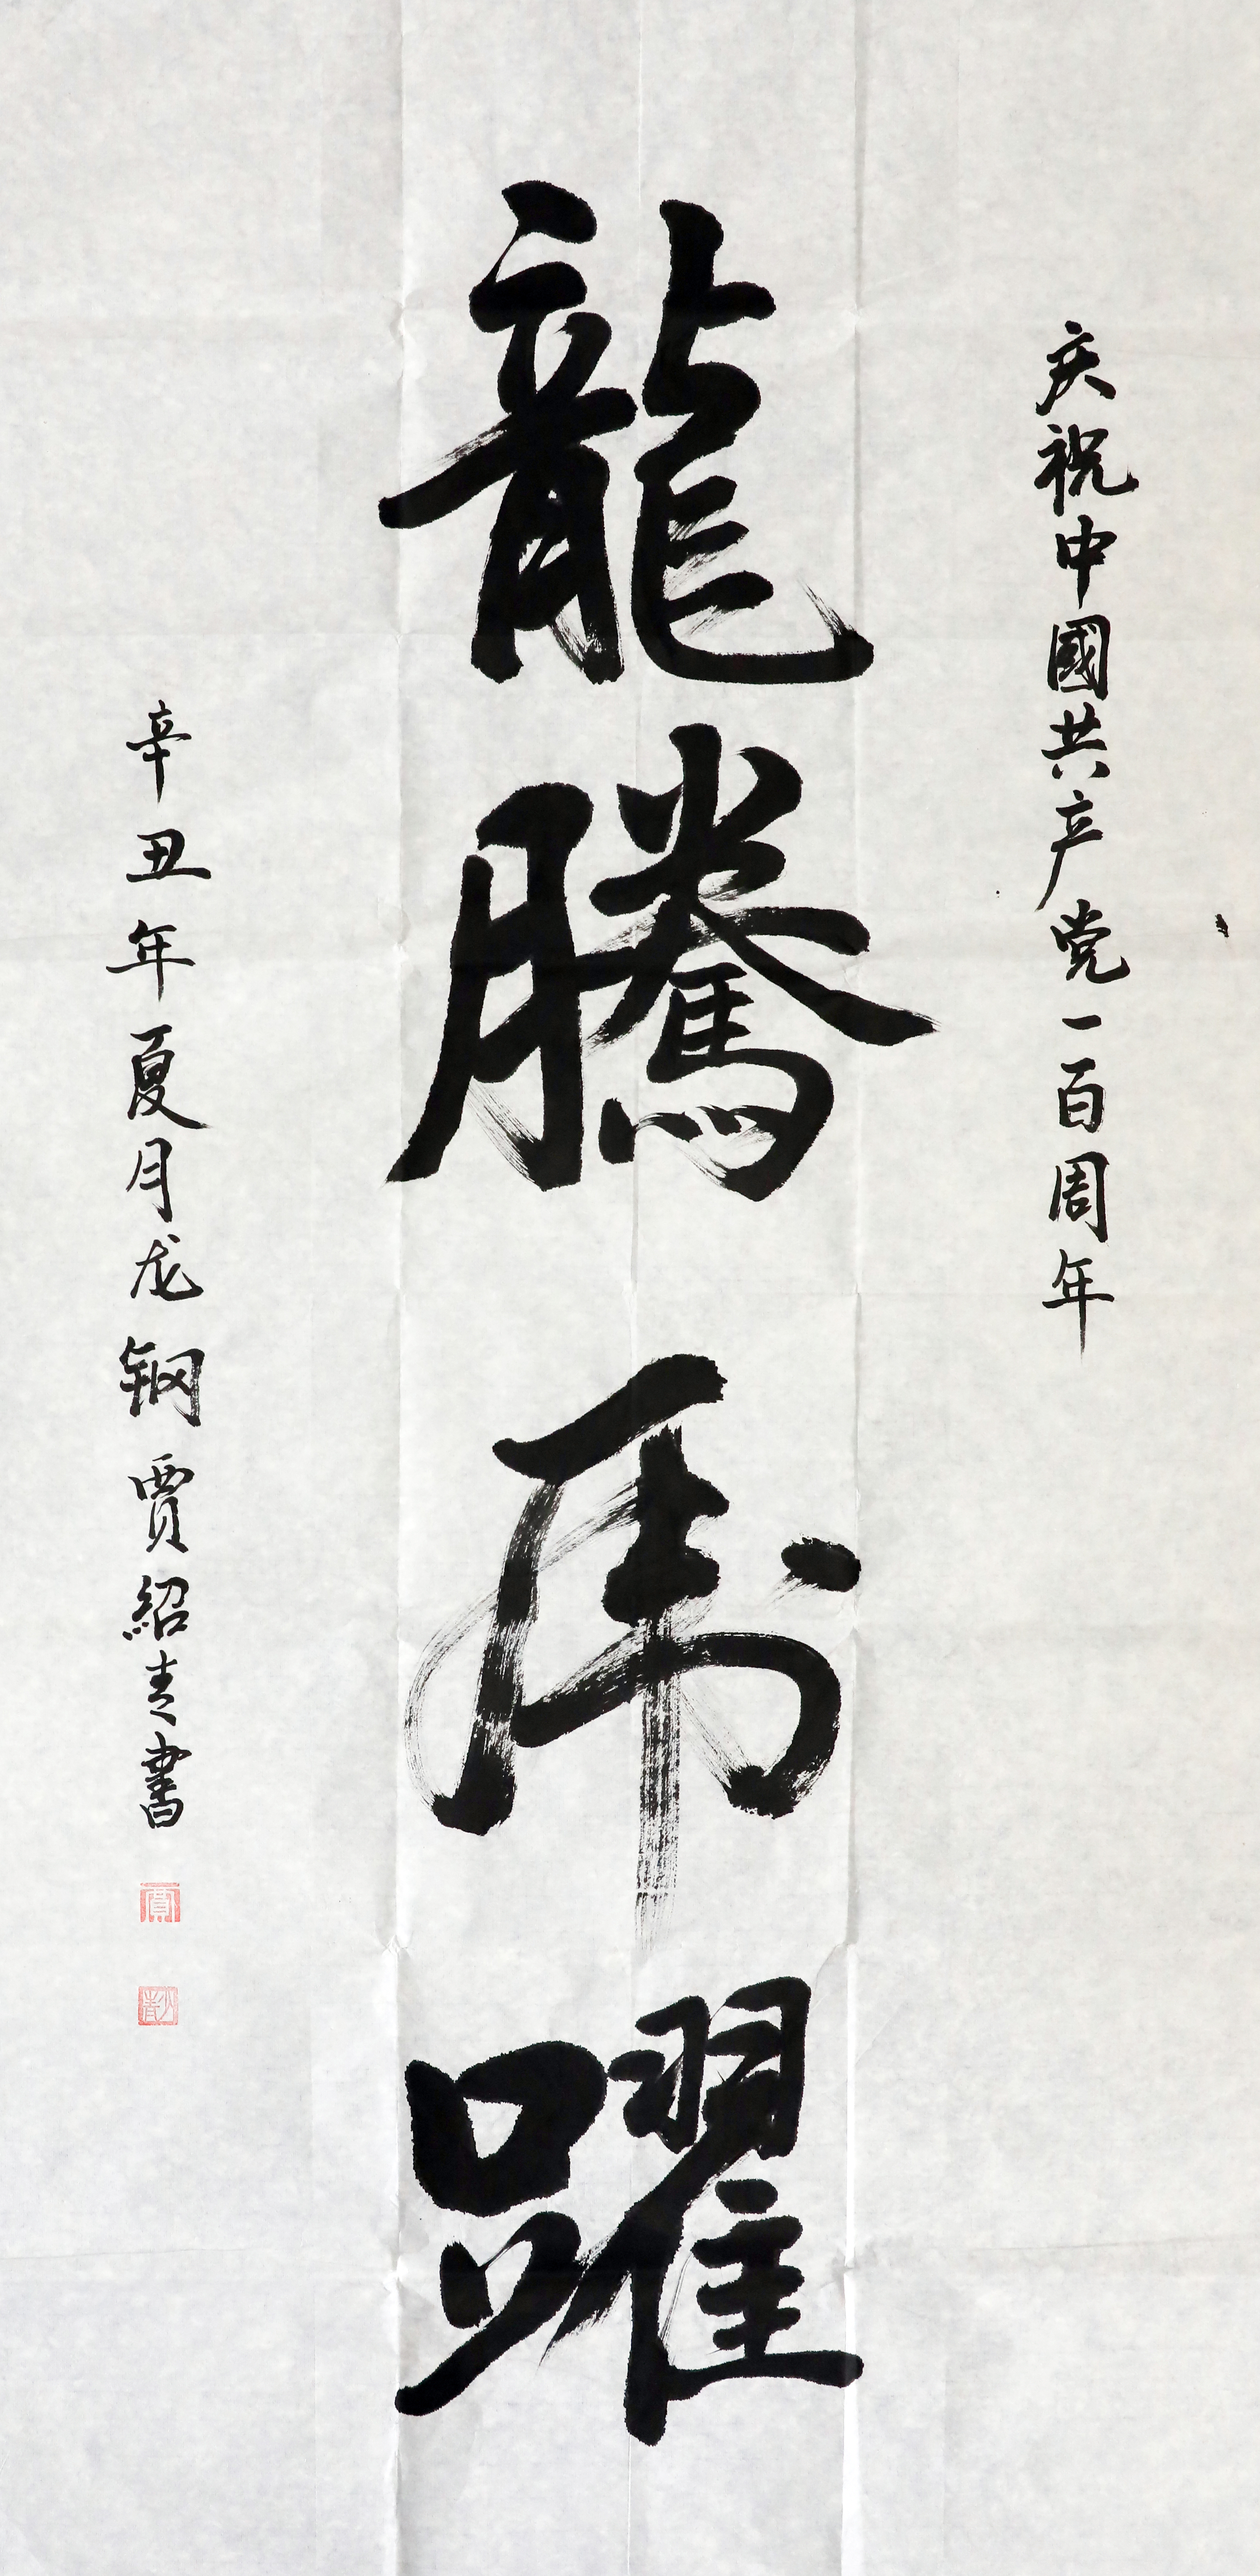 庆祝中國共产党一百周年
龍騰虎躍
辛丑年夏月龙钢贾紹青書